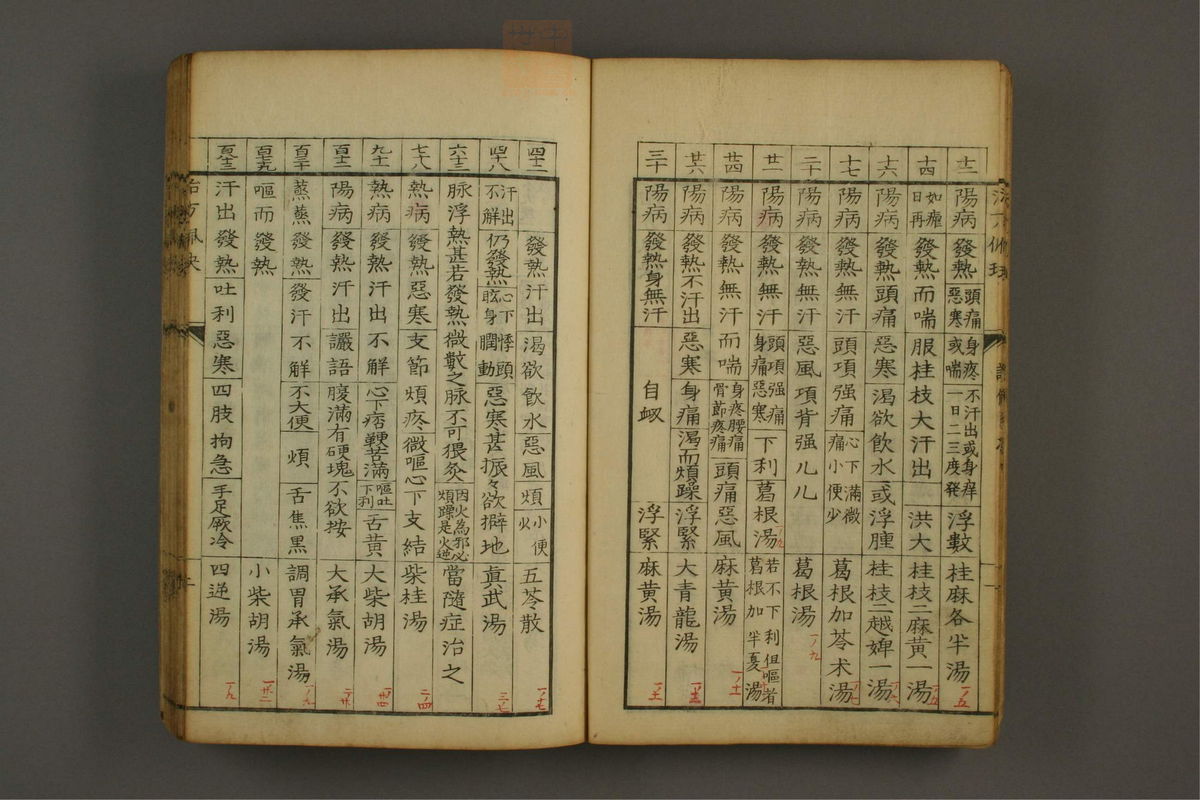 十二 陽病 發熱 頭痛惡寒 身疼或喘 不汗出或身痒一日二三度発 浮數 桂麻各半湯 一ノ五
十四 如瘧日再 發熱而喘 服桂枝大汗出 洪大 桂枝二麻黄一湯 一ノ五
十六 陽病 發熱頭痛 惡寒渴欲飲水或浮腫 桂枝二越婢一湯
十七 陽病 發熱無汗 頭項强痛 心下滿微痛小便少 葛根加苓术湯
二十 陽病 發熱無汗 惡風項背强儿儿 葛根湯 一ノ九
廿一 陽病 發熱無汗 頭項强痛身痛惡寒 下利 葛根湯 若不下利但嘔者葛根加半夏湯
廿四 陽病 發熱無汗 而喘 身疼腰痛骨節疼痛 頭痛惡風 麻黄湯 一ノ十一
廿六 陽病 發熱不汗出 惡寒 身痛 渴而煩躁 浮緊 大青龍湯
三十 陽病 發熱身無汗 自衂 浮緊 麻黄湯
四十二 發熱汗出 渴欲飲水惡風煩 小便 五苓散 一ノ七
四十八 汗出不解 仍發熱 心下悸頭眩身瞤動 惡寒甚振々欲擗地 眞武湯 三ノ七
六十三 脉浮熱甚若發熱微數之脉不可猥灸 因火為邪必煩躁是火逆 當隨症治之
七十八 熱病 發熱惡寒 支節煩疼微嘔心下支結 柴桂湯 二ノ四
九十一 熱病 發熱汗出不解 心下痞鞕苦滿 嘔吐下利 舌黄 大柴胡湯
百十二 陽病 發熱汗出 讝語 腹滿有硬塊不欲按 大承氣湯
百三十 蒸蒸發熱 發汗不解 不大便 煩 舌焦黒 調胃承氣湯
嘔而發熱 小柴胡湯
汗出發熱 吐利惡寒 四肢拘急 手足厥冷 四逆湯